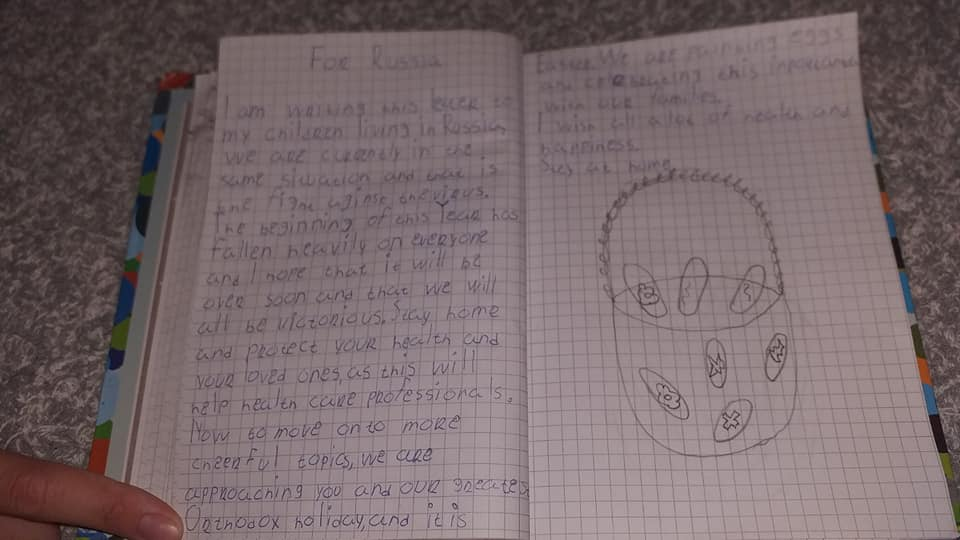 For Russia
I am writing this leter to
my children living in Russia
We are curently in the
same situation and that is
the fight aginst the virus.
The beginning of this Year has
fallen heavily on everyone
and I hope that it will be
over soon and that we will
all be victorious. Stay home
and protect your health and
your loved ones, as this will
help health care professionals.
Now to move on to more
cheerful topics, we are
approaching you and our greates
Orthodox holiday, and it is
Easter. We are painting eggs
and this
with our families.
I wish all a lot of health and
happiness.
Stey at home